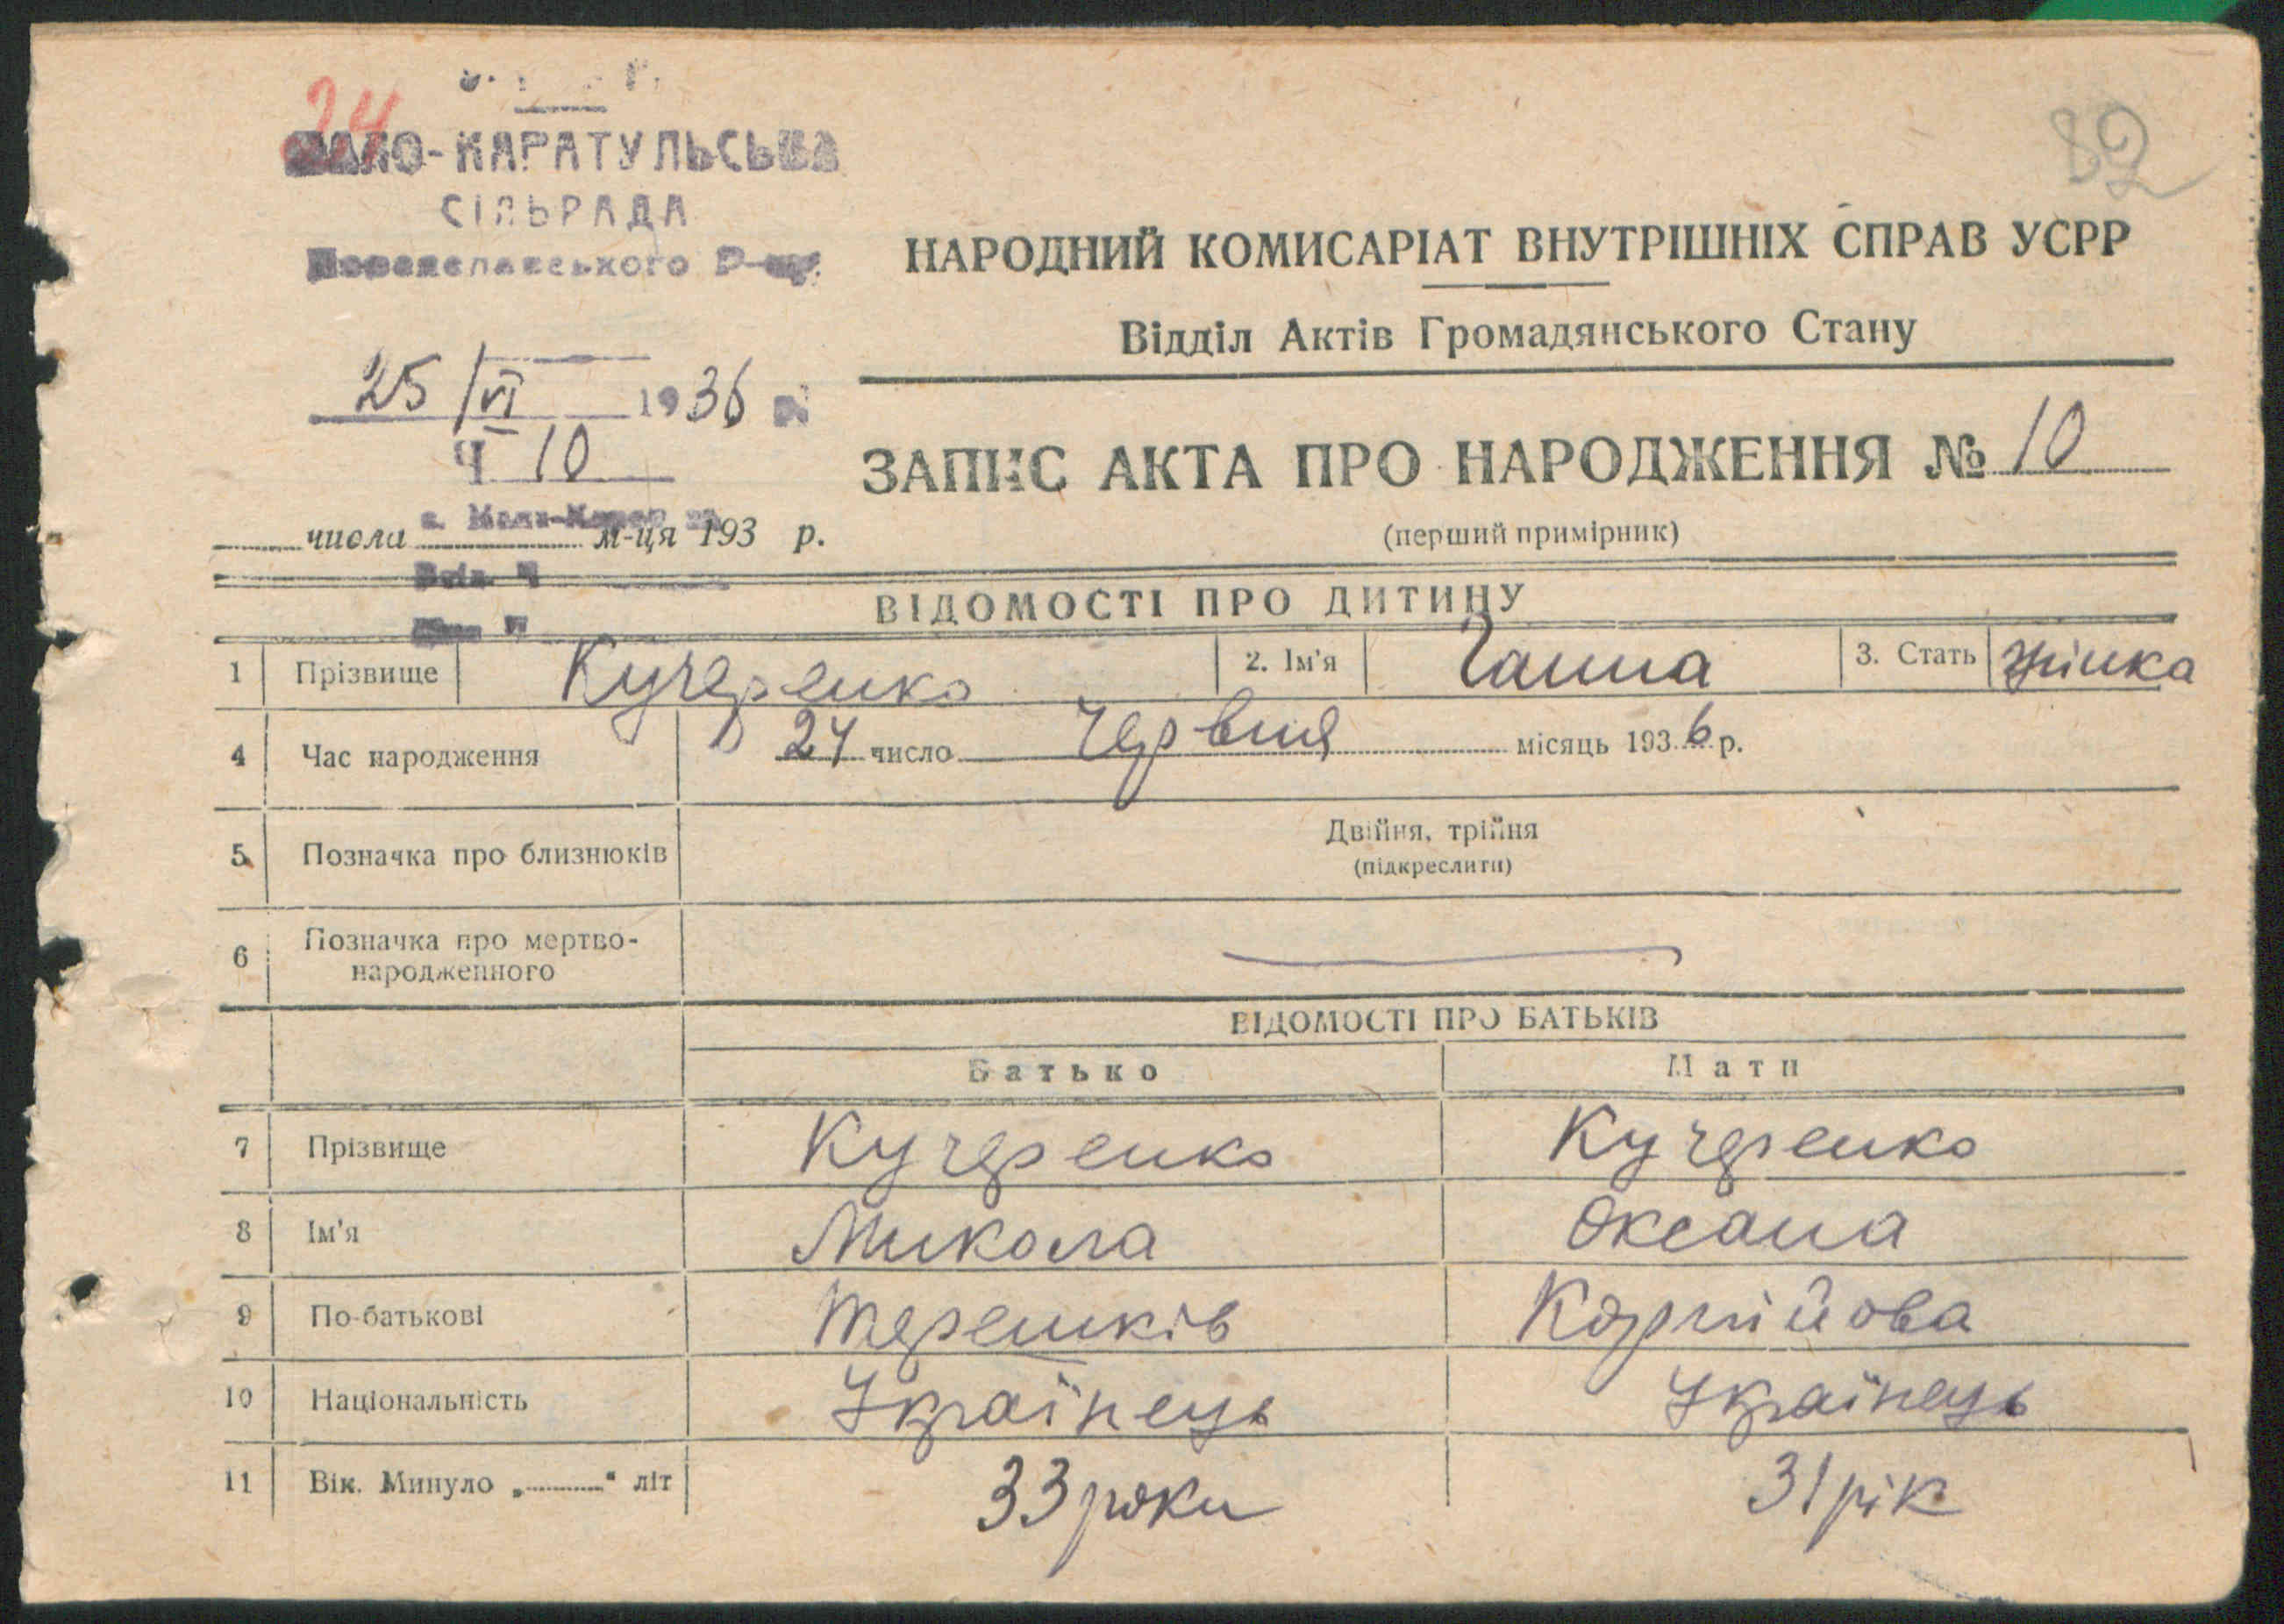 24
82
МАЛО-КАРАТУЛЬСЬКА
СІЛЬРАДА
Переяславського Р-ну
25/VI 1936 р.
Ч 10
числа м-ця 193 р.
НАРОДНИЙ КОМИСАРІАТ ВНУТРІШНІХ СПРАВ УСРР
Відділ Актів Громадянського Стану
ЗАПИС АКТА ПРО НАРОДЖЕННЯ № 10
(перший примірник)
ВІДОМОСТІ ПРО ДИТИНУ
1 Прізвище Кучеренко 2. Ім'я Ганна 3. Стать жінка
4 Час народження 24 число Червня місяць 1936 р.
5 Позначка про близнюків Двійня, трійня
(підкреслити)
6 Позначка про мертво-
народженного
ВІДОМОСТІ ПРО БАТЬКІВ
Батько Мати
7 Прізвище Кучеренко Кучеренко
8 Ім'я Микола Оксана
9 По-батькові Терешків Корнійова
10 Національність Українець Українець
11 Вік. Минуло „ " літ 33 роки 31 рік